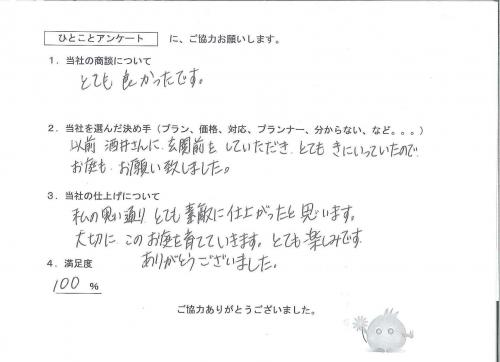 ひとことアンケート に、ご協力お願いします。
1．当社の商談について
とても 良かったです。
2．当社を選んだ決め手（プラン、価格、対応、プランナー、分からない、など。。。）
以前 酒井さんに 玄関前を していただき とても きにいっていたので
お庭も お願い致しました。
3．当社の仕上げについて
私の思い通り とても 素敵に仕上がったと思います。
大切に このお庭を育てていきます。とても 楽しみです
ありがとうございました。
4．満足度
100 %
ご協力ありがとうございました。